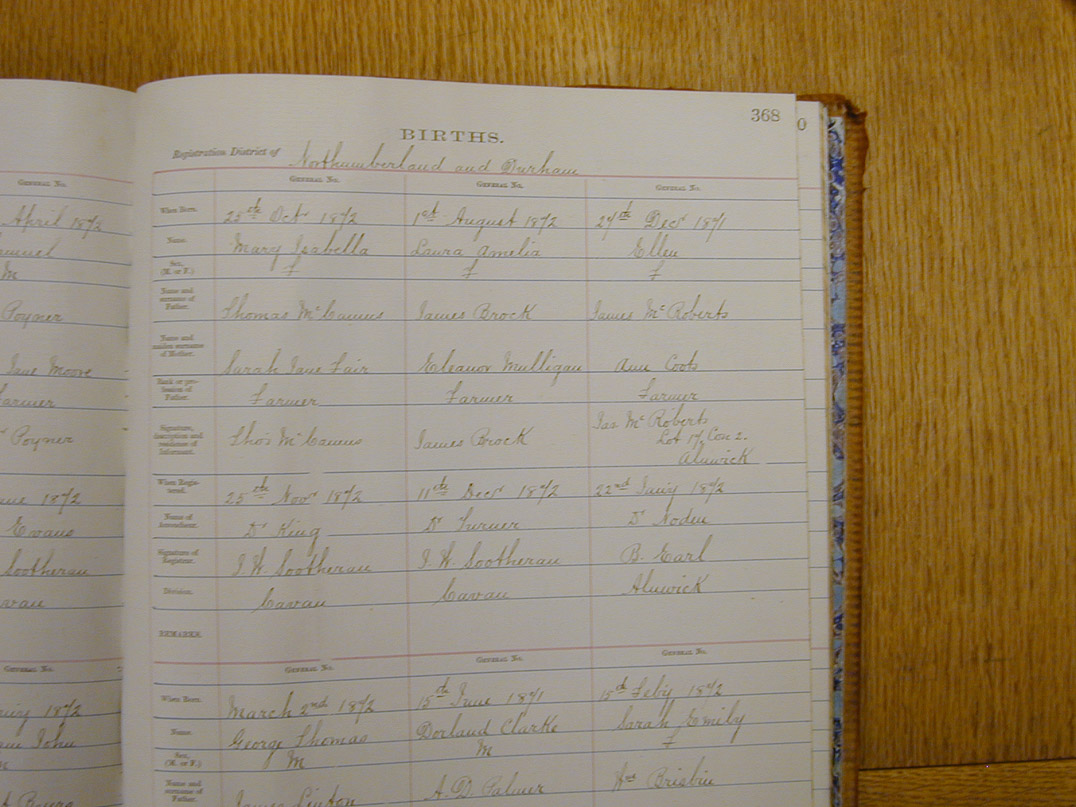 368
0
BIRTHS.
Registration District of Northumberland and Durham
GENERAL NO.
April 1872
M
Poyner
Jane Moore
Farmer
Poyner
1872
Evans
Sootheran
GENERAL NO.
1872
John
GENERAL NO. GENERAL NO. GENERAL NO.
When Born. 25th Octr 1872 1st August 1872 27th Decr 1871
Name. Mary Isabella Laura Amelia Ellen
Sex. (M. or F.) f f f
Name and surname of Father. Thomas McCamus James Brock James McRoberts
Name and maiden surname of Mother. Sarah Jane Fair Eleanor Mulligan Ann Coots
Rank or profession of Father. Farmer Farmer Farmer
Signature, description and residence of Informant. Thos McCamus James Brock Jas McRoberts
Lot 17, Con 2.
Alnwick
When Registered. 25th Novr 1872 11th Decr 1872 22nd Jany 1872
Name of Accoucheur. Dr King Dr Turner Dr Noden
Signature of Registrar. I. H. Sootheran I. H. Sootheran B. Earl
Division. Cavan Cavan Alnwick
REMARKS.
GENERAL NO. GENERAL NO. GENERAL NO.
When Born. March 2nd 1872 15th June 1871 15th Feby 1872
Name. George Thomas Dorland Clarke Sarah Emily
Sex. (M. or F.) M M f
Name and surname of Father. James Linton A. D. Palmer Hry Brisbin